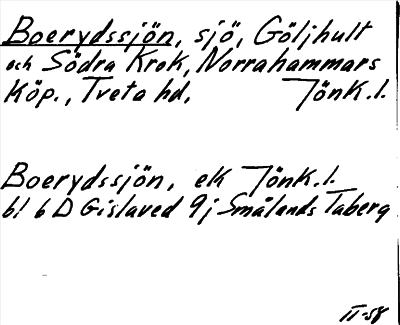 Boerydssjön, sjö, Göljhult
och Södra Krok, Norrahammars
köp., Tveta hd, Jönk.l.
Boerydssjön, ek Jönk.l.
bl 6 D Gislaved 9j Smålands Taberg
II-58